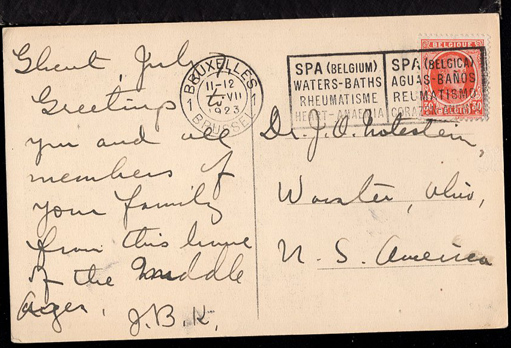 Ghent, July
Greetings to
you and all
members of
your family
from this home
of the Middle
Ages,
J.B.K.
BRUXELLES
1 1
11-12
VII
1923
BRUSSEL
SPA (BELGIUM)
WATERS-BATHS
RHEUMATISME
HEART-ANAEMIA
SPA (BELGICA)
AGUAS-BAÑOS
REUMATISMO
BELGIQUE
Dr. J. O.
Wooster, Ohio,
U. S. America